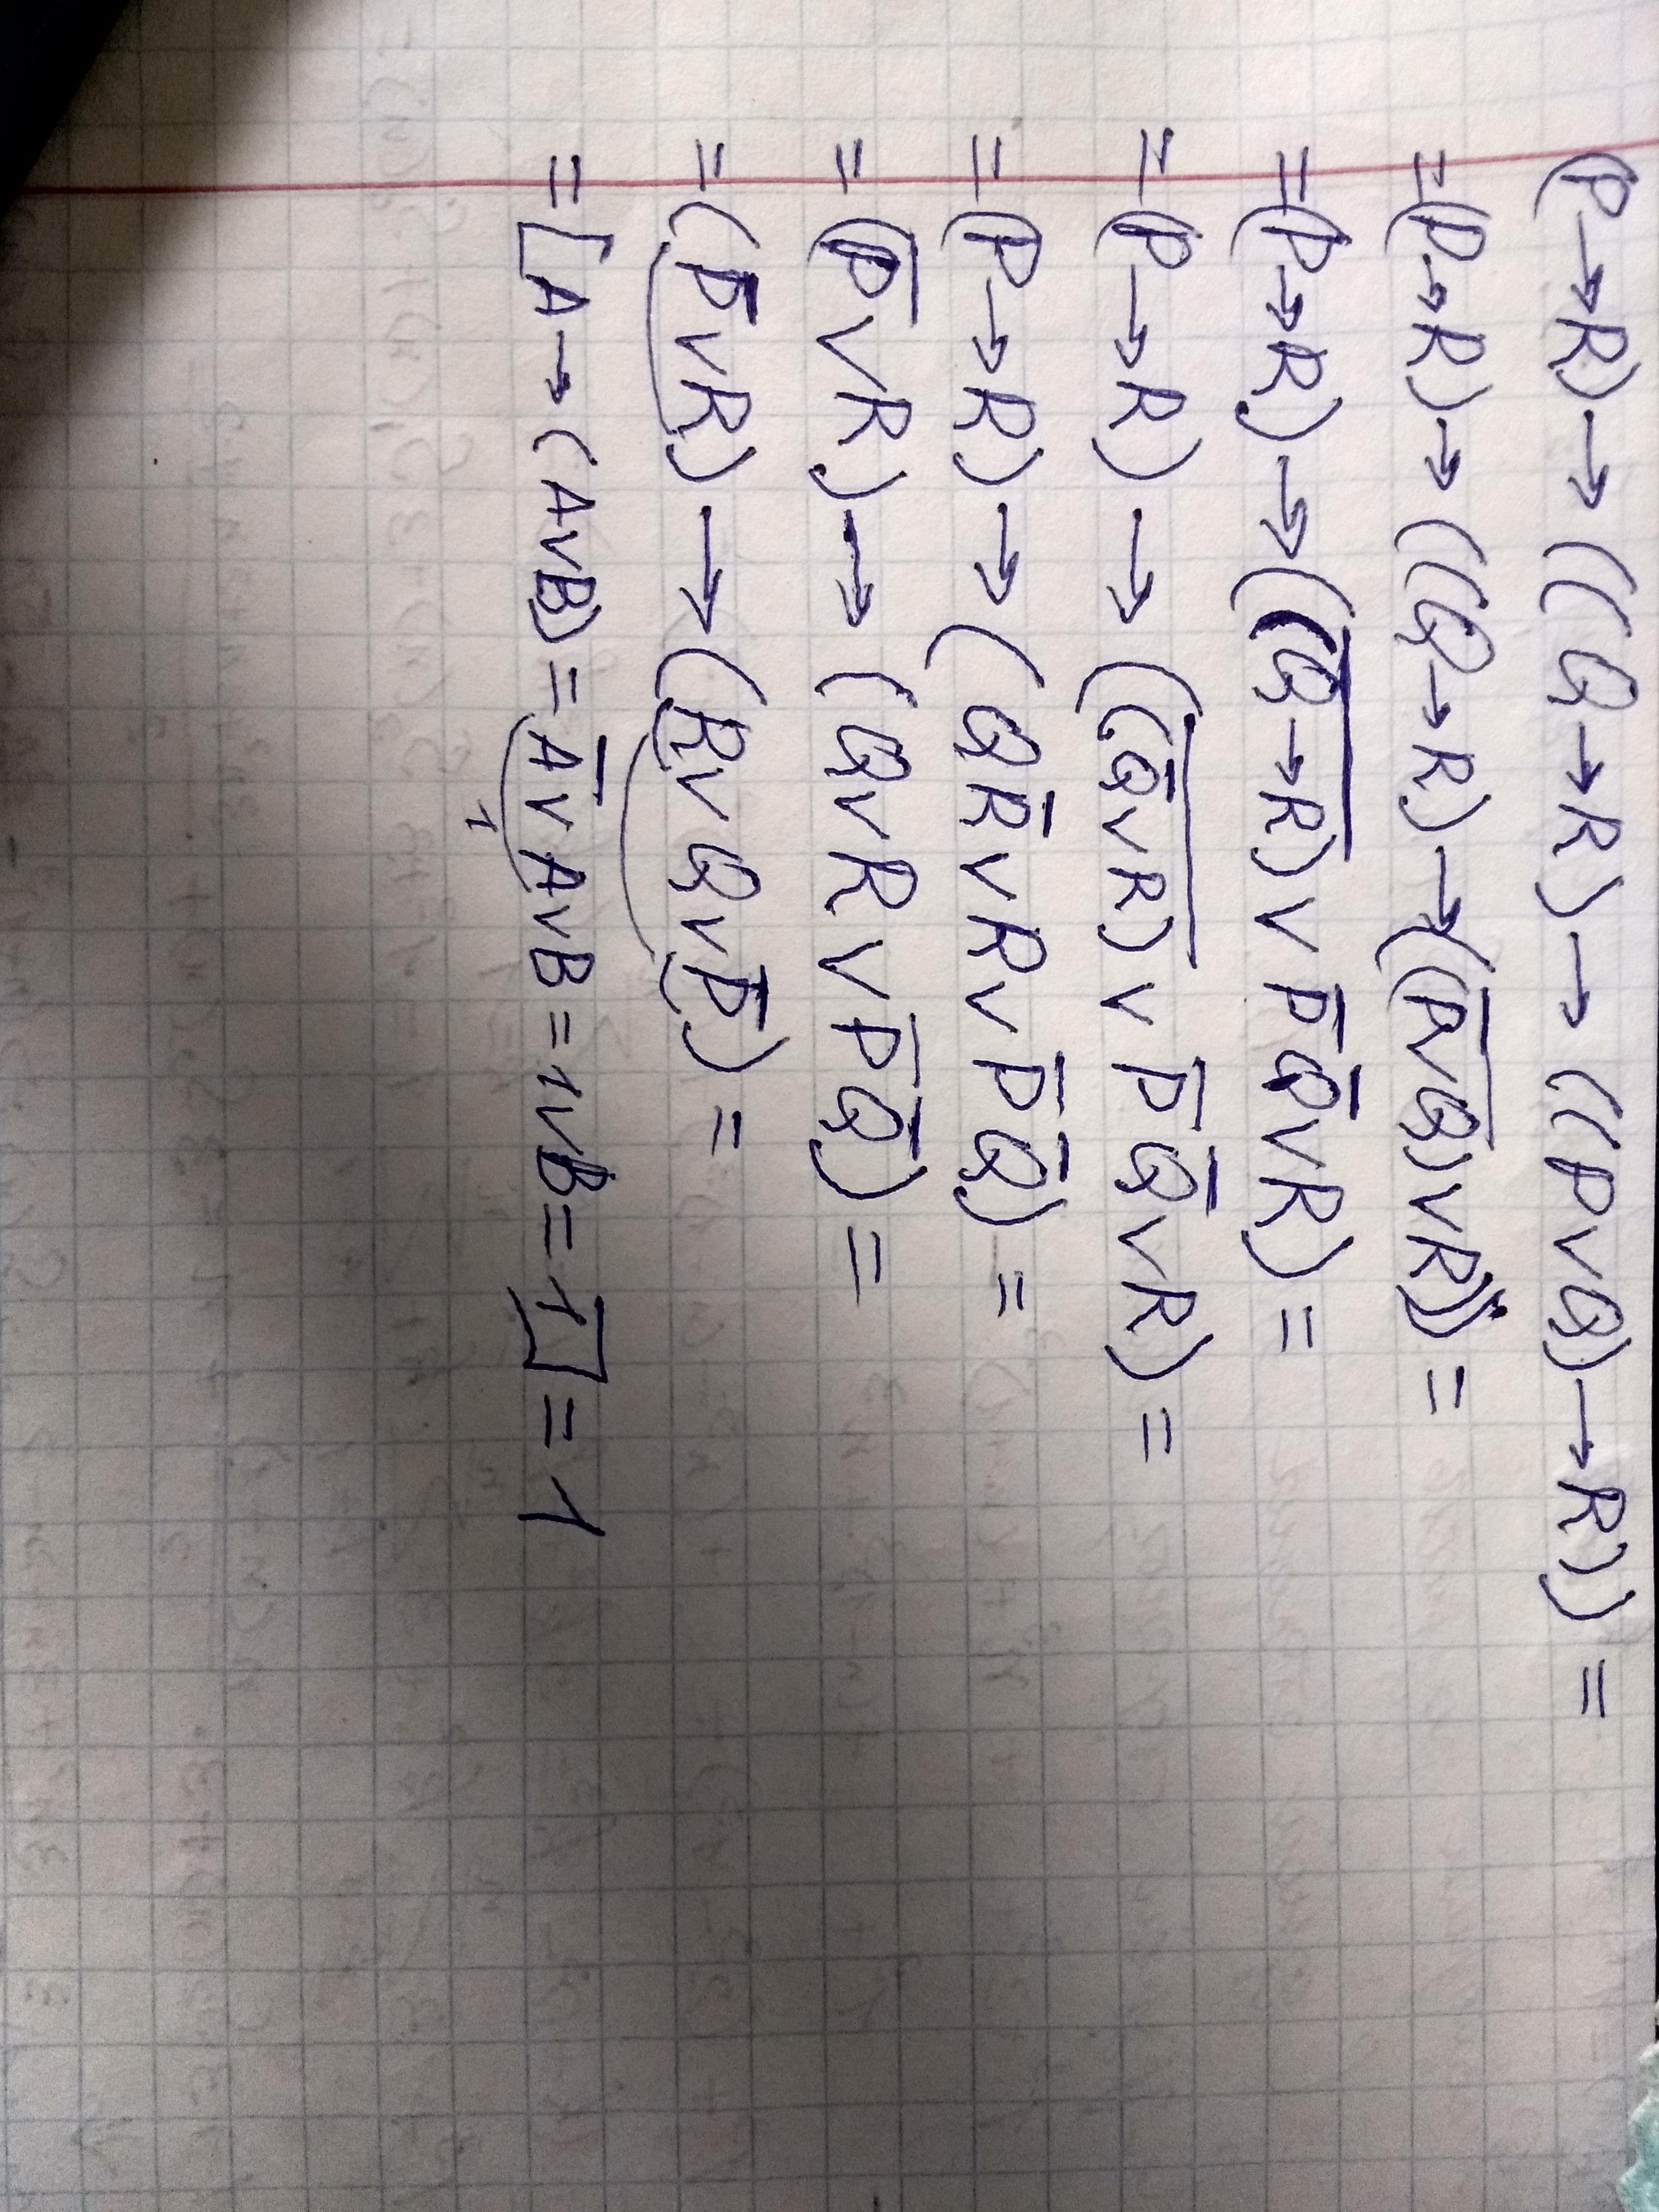 (P→R)→((Q→R)→((P∨Q)→R))=
=(P→R)→((Q→R)→((P̅∨̅Q̅)∨R))=
=(P→R)→((Q̅→̅R̅)∨P̅Q̅∨R)=
=(P→R)→((Q̅̅∨̅R̅)∨P̅Q̅∨R)=
=(P→R)→(QR̅∨R∨P̅Q̅)=
=(P̅∨R)→(Q∨R∨P̅Q̅)=
=(P̅∨R)→(R∨Q∨P̅)=
=[A→(A∨B)=A̅∨A∨B=1∨B=1]=1
1